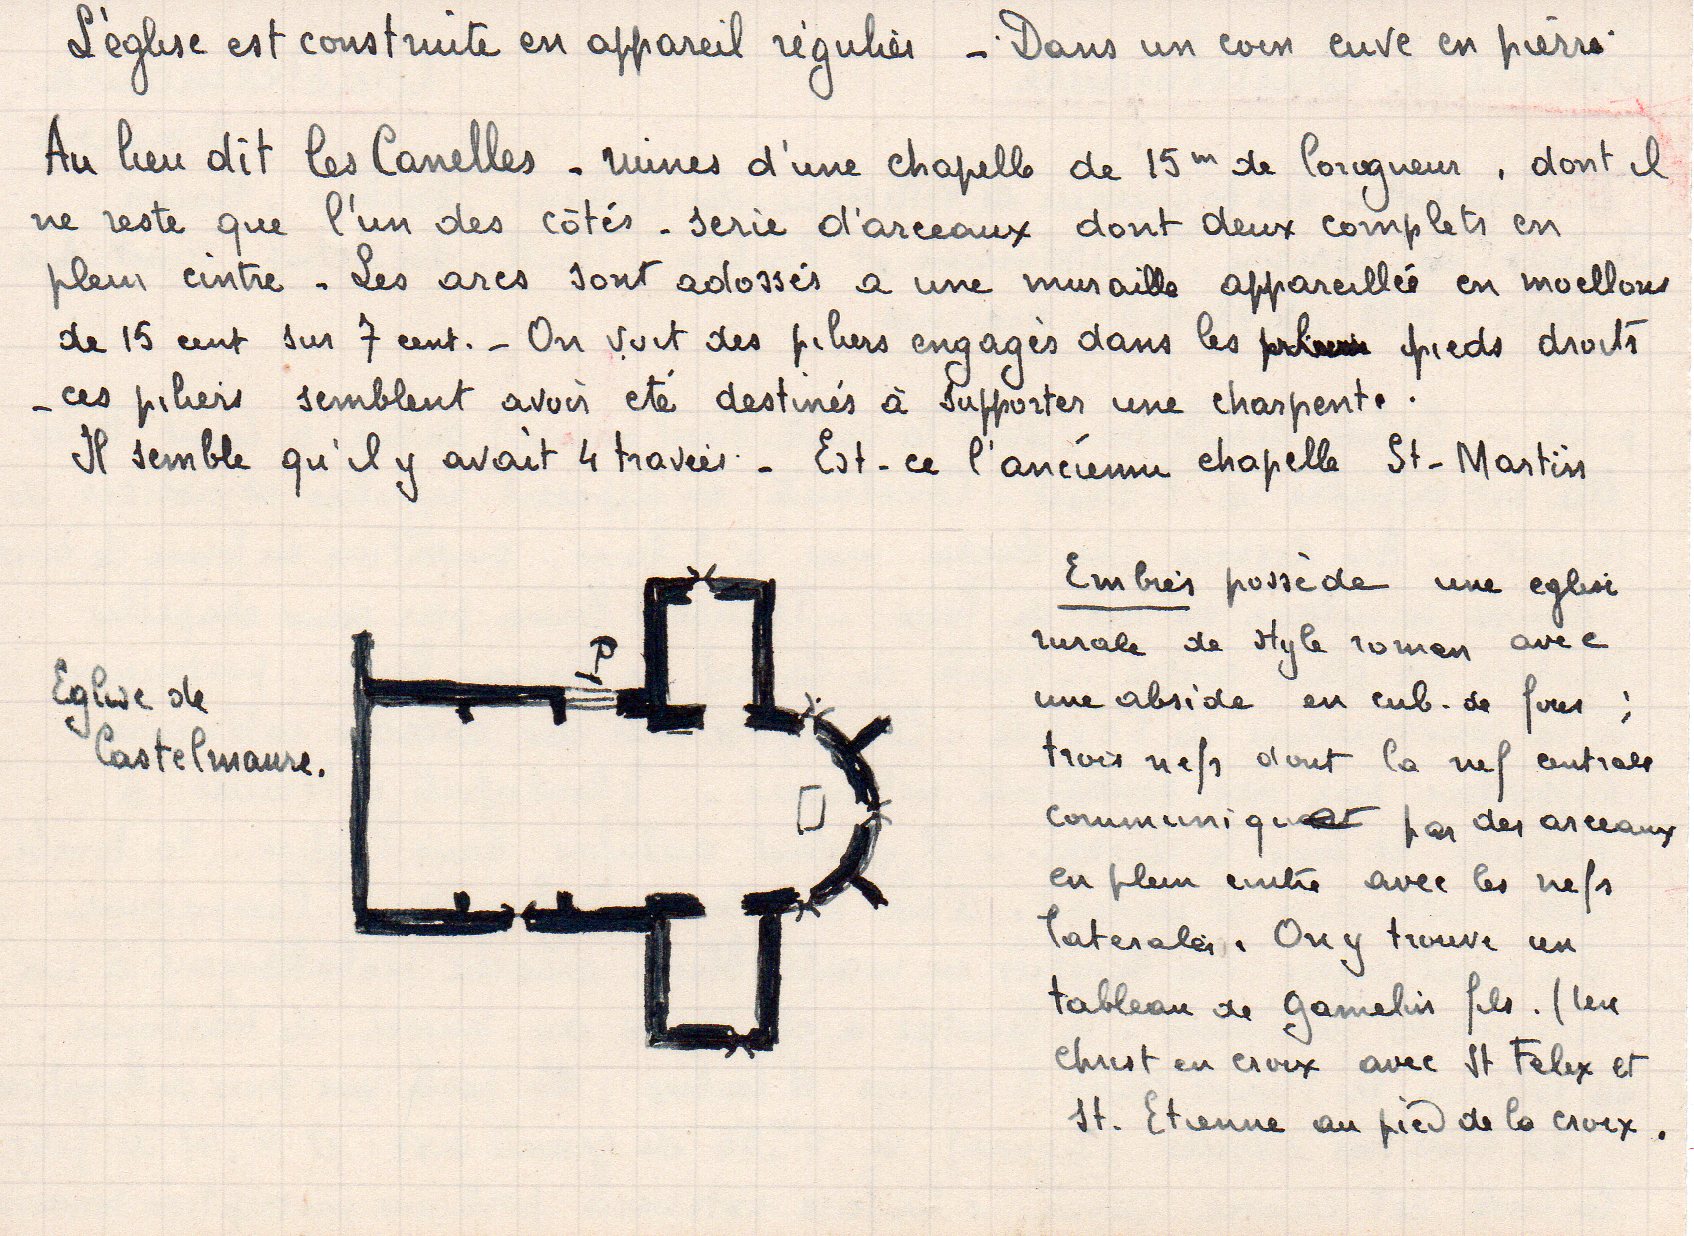 L'église est construite en appareil régulier - Dans un coin cuve en pierre.
Au lieu dit les Canelles - ruines d'une chapelle de 15m de longueur, dont il
ne reste que l'un des côtés - serie d'arceaux dont deux complets en
plein cintre - Les arcs sont adossés a une muraille appareillée en moellons
de 15 cent sur 7 cent. - On voit des piliers engagés dans les pieds droits
- ces piliers semblent avoir été destinés à supporter une charpente.
Il semble qu'il y avait 4 travées - Est-ce l'ancienne chapelle St-Martin
Eglise de
Castelmaure.
P
Embres possède une eglise
rurale de style roman avec
une abside en cul-de four ;
trois nefs dont la nef centrale
communique par des arceaux
en plein cintre avec les nefs
laterales. On y trouve un
tableau de Gamelin fils. (un
Christ en croix avec St Felix et
St. Etienne au pied de la croix.